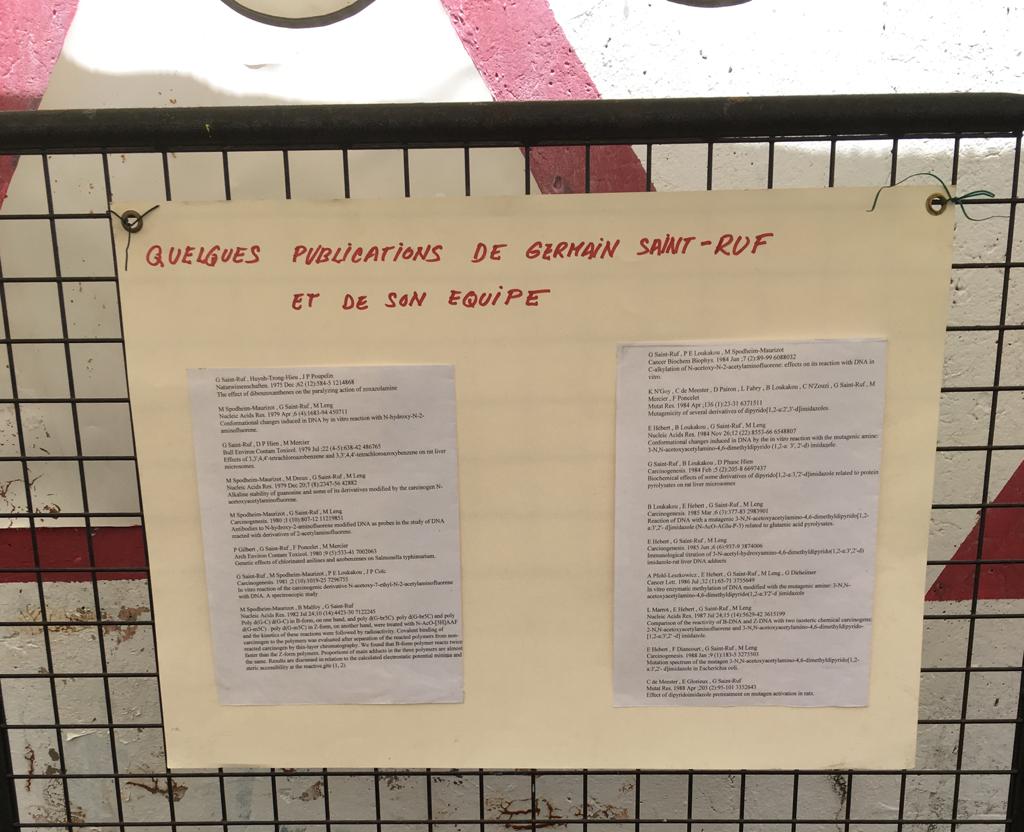 QUELQUES PUBLICATIONS DE GERMAIN SAINT-RUF
ET DE SON EQUIPE
G Saint-Ruf , Huynh-Trong-Hieu , J P Poupelin
Naturwissenschaften. 1975 Dec ;62 (12):584-5 1214868
The effect of dibenzoxanthenes on the paralyzing action of zoxazolamine
M Spodheim-Maurizot , G Saint-Ruf , M Leng
Nucleic Acids Res. 1979 Apr ;6 (4):1683-94 450711
Conformational changes induced in DNA by in vitro reaction with N-hydroxy-N-2-
aminofluorene.
G Saint-Ruf , D P Hien , M Mercier
Bull Environ Contam Toxicol. 1979 Jul ;22 (4-5):638-42 486765
Effects of 3,3',4,4'-tetrachloroazobenzene and 3,3',4,4'-tetrachloroazoxybenzene on rat liver
microsomes.
M Spodheim-Maurizot , M Dreux , G Saint-Ruf , M Leng
Nucleic Acids Res. 1979 Dec 20;7 (8):2347-56 42882
Alkaline stability of guanosine and some of its derivatives modified by the carcinogen N-
acetoxyacetylaminofluorene.
M Spodheim-Maurizot , G Saint-Ruf , M Leng
Carcinogenesis. 1980 ;1 (10):807-12 11219851
Antibodies to N-hydroxy-2-aminofluorene modified DNA as probes in the study of DNA
reacted with derivatives of 2-acetylaminofluorene.
P Gilbert , G Saint-Ruf , F Poncelet , M Mercier
Arch Environ Contam Toxicol. 1980 ;9 (5):533-41 7002063
Genetic effects of chlorinated anilines and azobenzenes on Salmonella typhimurium.
G Saint-Ruf , M Spodheim-Maurizot , P E Loukakou , J P Cotc
Carcinogenesis. 1981 ;2 (10):1019-25 7296755
In vitro reaction of the carcinogenic derivative N-acetoxy-7-ethyl-N-2-acetylaminofluorene
with DNA. A spectroscopic study
M Spodheim-Maurizot , B Malfoy , G Saint-Ruf
Nucleic Acids Res. 1982 Jul 24;10 (14):4423-30 7122245
Poly d(G-C) d(G-C) in B-form, on one hand, and poly d(G-br5C) poly d(G-br5C) and poly
d(G-m5C) . poly d(G-m5C) in Z-form, on another hand, were treated with N-AcO-[3H]AAF
and the kinetics of these reactions were followed by radioactivity. Covalent binding of
carcinogen to the polymers was evaluated after separation of the reacted polymers from non-
reacted carcinogen by thin-layer chromatography. We found that B-form polymer reacts twice
faster than the Z-form polymers. Proportions of main adducts in the three polymers are almost
the same. Results are discussed in relation to the calculated electrostatic potential minima and
steric accessibility at the reactive site (1, 2).
G Saint-Ruf , P E Loukakou , M Spodheim-Maurizot
Cancer Biochem Biophys. 1984 Jun ;7 (2):89-99 6088032
C-alkylation of N-acetoxy-N-2-acetylaminofluorene: effects on its reaction with DNA in
vitro.
K N'Goy , C de Meester , D Pairon , L Fabry , B Loukakou , C N'Zouzi , G Saint-Ruf , M
Mercier , F Poncelet
Mutat Res. 1984 Apr ;136 (1):23-31 6371511
Mutagenicity of several derivatives of dipyrido[1,2-a:2',3'-d]imidazoles.
E Hébert , B Loukakou , G Saint-Ruf , M Leng
Nucleic Acids Res. 1984 Nov 26;12 (22):8553-66 6548807
Conformational changes induced in DNA by the in vitro reaction with the mutagenic amine:
3-N,N-acetoxyacetylamino-4,6-dimethyldipyrido (1,2-a: 3', 2'-d) imidazole.
G Saint-Ruf , B Loukakou , D Phanc Hien
Carcinogenesis. 1984 Feb ;5 (2):205-8 6697437
Biochemical effects of some derivatives of dipyrido[1,2-a:3',2'-d]imidazole related to protein
pyrolysates on rat liver microsomes
B Loukakou , E Hebert , G Saint-Ruf , M Leng
Carcinogenesis. 1985 Mar ;6 (3):377-83 2983901
Reaction of DNA with a mutagenic 3-N,N-acetoxyacetylamino-4,6-dimethyldipyrido[1,2-
a:3',2'-d]imidazole (N-AcO-AGlu-P-3) related to glutamic acid pyrolysates.
E Hebert , G Saint-Ruf , M Leng
Carcinogenesis. 1985 Jun ;6 (6):937-9 3874006
Immunological titration of 3-N-acetyl-hydroxyamino-4,6-dimethyldipyrido(1,2-a:3',2'-d)
imidazole-rat liver DNA adducts
A Pfohl-Leszkowicz , E Hebert , G Saint-Ruf , M Leng , G Dirheimer
Cancer Lett. 1986 Jul ;32 (1):65-71 3755649
In vitro enzymatic methylation of DNA modified with the mutagenic amine: 3-N,N-
acetoxyacetylamino-4,6-dimethyldipyrido(1,2-a:3'2'-d) imidazole
L Marrot , E Hebert , G Saint-Ruf , M Leng
Nucleic Acids Res. 1987 Jul 24;15 (14):5629-42 3615199
Comparison of the reactivity of B-DNA and Z-DNA with two isosteric chemical carcinogens:
2-N,N-acetoxyacetylaminofluorene and 3-N,N-acetoxyacetylamino-4,6-dimethyldipyrido-
[1,2-a:3',2'-d] imidazole.
E Hebert , F Diancourt , G Saint-Ruf , M Leng
Carcinogenesis. 1988 Jan ;9 (1):183-5 3275503
Mutation spectrum of the mutagen 3-N,N-acetoxyacetylamino-4,6-dimethyldipyrido[1,2-
a:3',2'- d]imidazole in Escherichia coli.
C de Meester , E Glorieux , G Saint-Ruf
Mutat Res. 1988 Apr ;203 (2):95-101 3352643
Effect of dipyridoimidazole pretreatment on mutagen activation in rats.